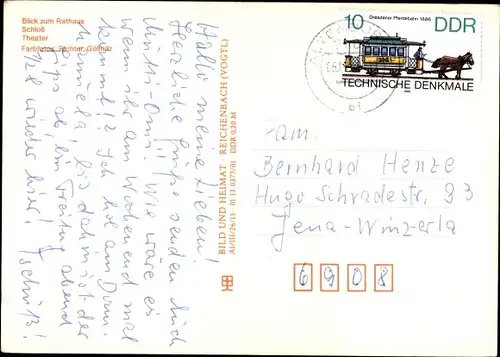 Blick zum Rathaus
Schloß
Theater
Farbfotos: Richter, Gößnitz
Hallo meine Lieben!
Herzliche Grüße senden Euch
Mutti-Omi! Wie wäre es
wenn ihr am Wochenend mal
kommt!? Ich hol am Donn.
Manuela, bis dahin ist der
Gips ab, bin Freitag abend
wieder hier! Tschüß!
BILD UND HEIMAT REICHENBACH (VOGTL)
A1/III/26/13 01 13 0377/01 DDR 0,20 M
10 Dresdener Pferdebahn 1886 DDR
TECHNISCHE DENKMALE
Fam.
Bernhard Henze
Hugo Schradestr. 93
Jena-Winzerla
6908